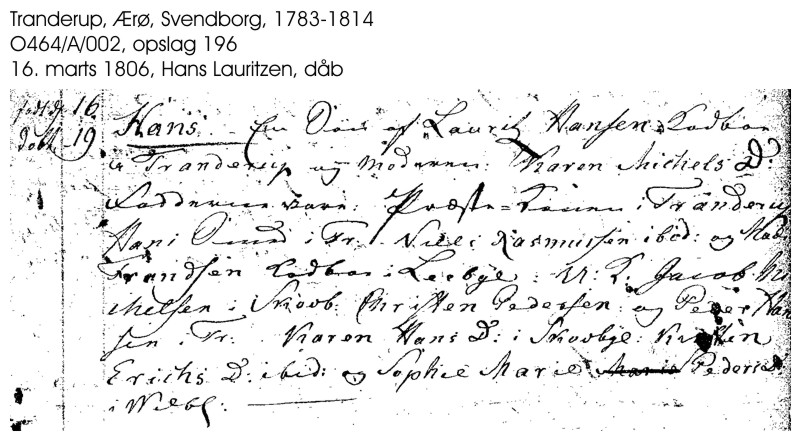 Tranderup, Ærø, Svendborg, 1783-1814
O464/A/002, opslag 196
16. marts 1806, Hans Lauritzen, dåb
født d 16
døbt 19 Hans. En Søn af Lauritz Hansen Boelboe
i Tranderup og Moderen: Karen Michels D:
Fadderne vare: Præste-Konen i Tranderup
Hans Smed i Tr. Niels Rasmussen ibid: og Mads
Frandsen i Leebye: U: K. Jacob Mi
chelsen i Skovb: Christen Pedersen og Peder Han
sen i Tr. Karen Hans D: i Skovbye Kirsten
Erichs D: ibid: og Sophie Marie Maria Peders D
i Welbl: